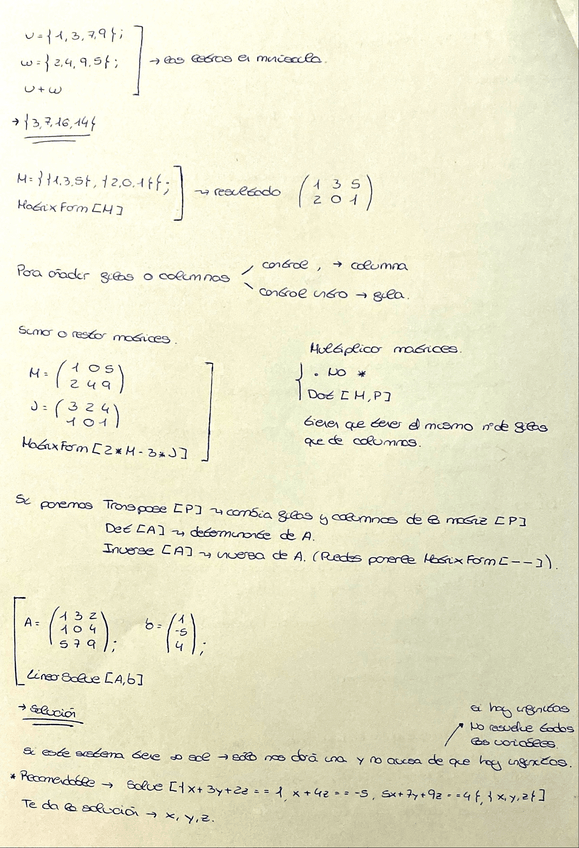 v={1,3,7,9};
w={2,4,9,5};
v+w
→ las letras en minúscula.
→ {3,7,16,14}
M={{1,3,5},{2,0,1}};
MatrixForm[M]
→ resultado (1 3 5
2 0 1)
Para añadir filas o columnas
control , → columna
control intro → fila.
Sumar o restar matrices.
M= (1 0 5
2 4 9)
J= (3 2 4
1 0 1)
MatrixForm[2*M-3*J]
Multiplico matrices.
. NO *
Dot [M,P]
tienen que tener el mismo nº de filas
que de columnas.
Si ponemos Transpose [P] → cambia filas y columnas de la matriz [P]
Det [A] → determinante de A.
Inverse [A] → inversa de A. (Puedes ponerle MatrixForm[--]).
A= (1 3 2
1 0 4
5 7 9);
b= (1
-5
4);
LinearSolve [A,b]
→ Solución
si hay infinitas
No resuelve todas
las variables
Si este sistema tiene ∞ sol → sólo nos dará una y no avisa de que hay infinitas.
* Recomendable → Solve [{x+3y+2z==1, x+4z==-5, 5x+7y+9z==4}, {x,y,z}]
Te da la solución → x, y, z.